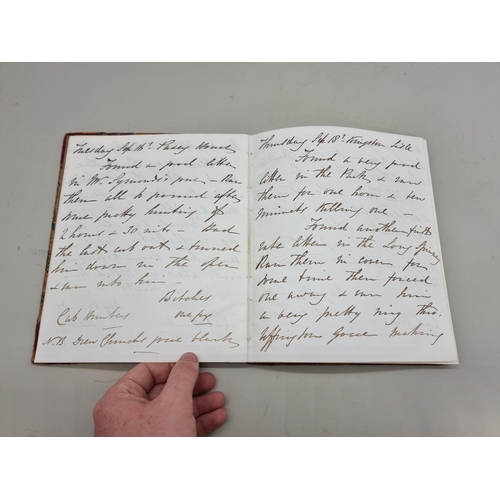 Tuesday Sep 16th Pusey Wood
Found a good litter
in Mr Symonds's gorse - Ran
them all to ground after
some pretty hunting of
2 hours & 30 mits - Had
the last cub out & turned
him down in the open
& ran into him
Bitches
Cub Hunting one fox
N.B. Drew Church's gorse blank
Thursday Sep 18th Kingston Lisle
Found a very good
litter in the Park & ran
them for one hour & ten
minutes killing one -
Found another
litter in the Long Spinney
Ran them in cover for
some time then forced
one away & ran him
a very pretty ring thro
Uffington Gorse making